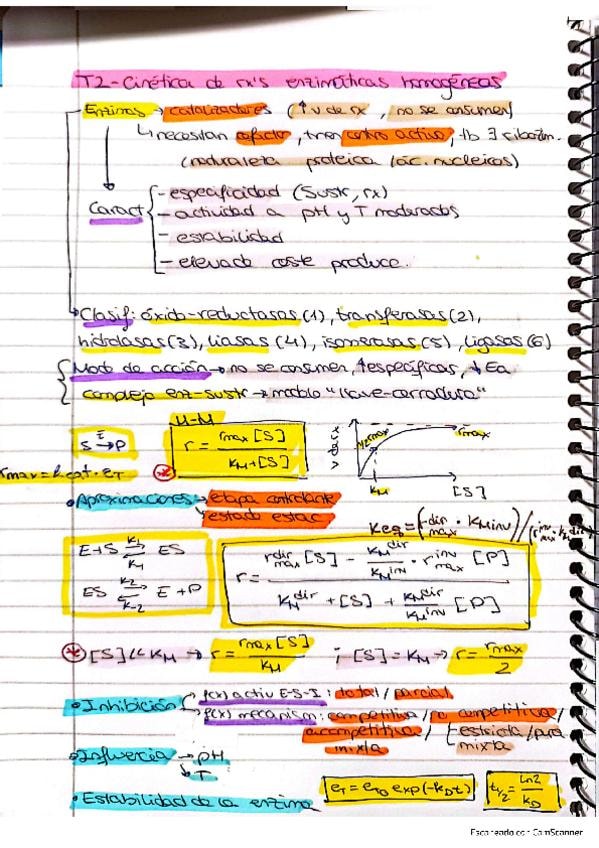 T2 - Cinética de rx's enzimáticas homogéneas
Enzimas → catalizadores (↑ v de rx, no se consumen)
↳ necesitan cofactor, tienen centro activo, tb ∃ ribozim.
(naturaleza proteica / ác. nucleicos)
Caract
- especificidad (sustr, rx)
- actividad a pH y T moderados
- estabilidad
- elevado coste produce.
Clasif: óxido-reductasas (1), transferasas (2),
hidrolasas (3), liasas (4), isomerasas (5), ligasas (6)
Modo de acción → no se consumen, ↑específicas, ↓Ea
complejo enz-sustr → modelo "llave-cerradura"
M-M
S →E P
r = rmax [S] / KM + [S]
rmax = kcat · eT
1/2 rmax
rmax
KM
[S]
• Aproximaciones → etapa controlante
→ estado estac
Keq = (rdir max · KM inv) / (rinv max · KM dir)
E+S ⇌ ES
k1
k-1
ES ⇌ E+P
k2
k-2
r = rdir max [S] - KM dir / KM inv · rinv max [P] / KM dir + [S] + KM dir / KM inv [P]
[S] << KM → r = rmax [S] / KM ; [S] = KM → r = rmax / 2
• Inhibición
f(x) activ E-S-I: total / parcial
f(x) mecanism: competitiva / no competitiva /
acompetitiva / mixta
estricta / pura
mixta
• Influencia → pH
↳ T
• Estabilidad de la enzima
eT = eT0 exp (-kD t)
t1/2 = ln2 / kD
Escaneado con CamScanner